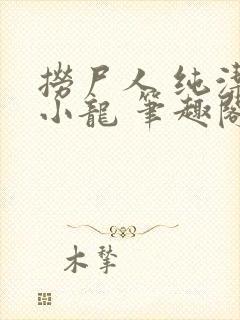 撈尸人 纯洁
小龍 筆趣閣
木犂